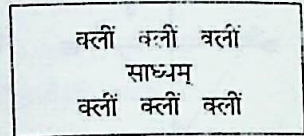 क्लीं क्लीं क्लीं
साध्यम्
क्लीं क्लीं क्लीं